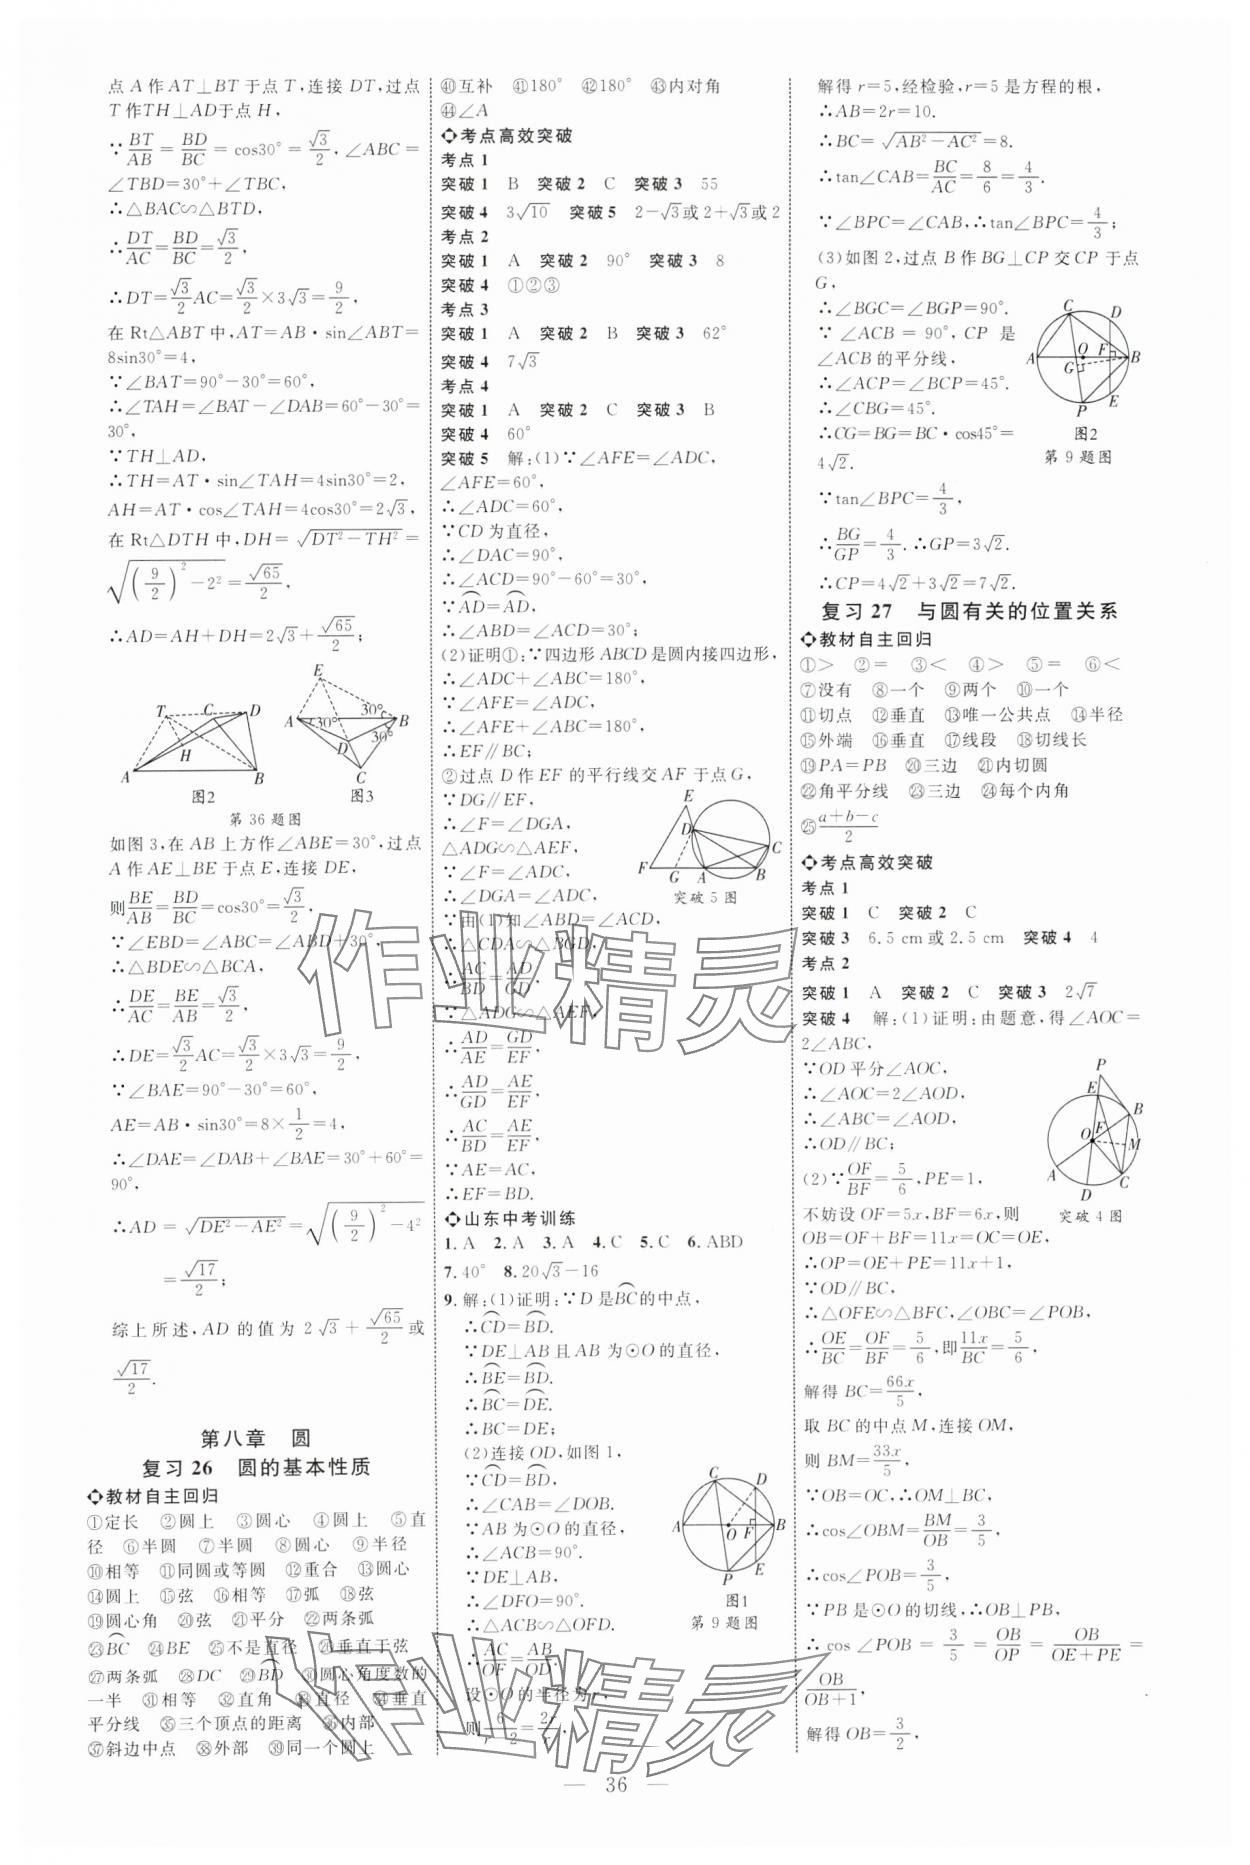 点 A 作 AT⊥BT 于点 T,连接 DT,过点
T 作 TH⊥AD 于点 H,
∵BT/AB=BD/BC=cos30°=√3/2,∠ABC=
∠TBD=30°+∠TBC,
∴△BAC∽△BTD,
∴DT/AC=BD/BC=√3/2,
∴DT=√3/2AC=√3/2×3√3=9/2,
在 Rt△ABT 中,AT=AB·sin∠ABT=
8sin30°=4,
∵∠BAT=90°-30°=60°,
∴∠TAH=∠BAT-∠DAB=60°-30°=
30°,
∵TH⊥AD,
∴TH=AT·sin∠TAH=4sin30°=2,
AH=AT·cos∠TAH=4cos30°=2√3,
在 Rt△DTH 中,DH=√(DT²-TH²)=
√((9/2)²-2²)=√65/2,
∴AD=AH+DH=2√3+√65/2;
T C D H A B
图2
E A 30° 30° B D 30° C
图3
第 36 题图
如图 3,在 AB 上方作∠ABE=30°,过点
A 作 AE⊥BE 于点 E,连接 DE,
则BE/AB=BD/BC=cos30°=√3/2,
∵∠EBD=∠ABC=∠ABD+30°,
∴△BDE∽△BCA,
∴DE/AC=BE/AB=√3/2,
∴DE=√3/2AC=√3/2×3√3=9/2,
∵∠BAE=90°-30°=60°,
AE=AB·sin30°=8×1/2=4,
∴∠DAE=∠DAB+∠BAE=30°+60°=
90°,
∴AD=√(DE²-AE²)=√((9/2)²-4²)
=√17/2;
综上所述,AD 的值为 2√3+√65/2或
√17/2.
第八章 圆
复习 26 圆的基本性质
教材自主回归
①定长 ②圆上 ③圆心 ④圆上 ⑤直
径 ⑥半圆 ⑦半圆 ⑧圆心 ⑨半径
⑩相等 ⑪同圆或等圆 ⑫重合 ⑬圆心
⑭圆上 ⑮弦 ⑯相等 ⑰弧 ⑱弦
⑲圆心角 ⑳弦 ㉑平分 ㉒两条弧
㉓B͡C ㉔BE ㉕不是直径 ㉖垂直于弦
㉗两条弧 ㉘DC ㉙B͡D ㉚圆心角度数的
一半 ㉛相等 ㉜直角 ㉝直径 ㉞垂直
平分线 ㉟三个顶点的距离 ㊱内部
㊲斜边中点 ㊳外部 ㊴同一个圆上
㊵互补 ㊶180° ㊷180° ㊸内对角
㊹∠A
考点高效突破
考点 1
突破 1 B 突破 2 C 突破 3 55
突破 4 3√10 突破 5 2-√3或 2+√3或 2
考点 2
突破 1 A 突破 2 90° 突破 3 8
突破 4 ①②③
考点 3
突破 1 A 突破 2 B 突破 3 62°
突破 4 7√3
考点 4
突破 1 A 突破 2 C 突破 3 B
突破 4 60°
突破 5 解:(1)∵∠AFE=∠ADC,
∠AFE=60°,
∴∠ADC=60°,
∵CD 为直径,
∴∠DAC=90°,
∴∠ACD=90°-60°=30°,
∵A͡D=A͡D,
∴∠ABD=∠ACD=30°;
(2)证明①:∵四边形 ABCD 是圆内接四边形,
∴∠ADC+∠ABC=180°,
∵∠AFE=∠ADC,
∴∠AFE+∠ABC=180°,
∴EF∥BC;
②过点 D 作 EF 的平行线交 AF 于点 G,
∵DG∥EF,
∴∠F=∠DGA,
△ADG∽△AEF,
∵∠F=∠ADC,
∴∠DGA=∠ADC,
E D C F G A B
突破 5 图
∵由(1)知∠ABD=∠ACD,
∴△CDA∽△BGD,
∴AC/BD=AD/GD,
∵△ADG∽△AEF,
∴AD/AE=GD/EF,
∴AD/GD=AE/EF,
∴AC/BD=AE/EF,
∵AE=AC,
∴EF=BD.
山东中考训练
1. A 2. A 3. A 4. C 5. C 6. ABD
7. 40° 8. 20√3-16
9. 解:(1)证明:∵D 是B͡C的中点,
∴C͡D=B͡D.
∵DE⊥AB 且 AB 为⊙O 的直径,
∴B͡E=B͡D.
∴B͡C=D͡E.
∴BC=DE;
(2)连接 OD,如图 1,
∵C͡D=B͡D,
∴∠CAB=∠DOB.
∵AB 为⊙O 的直径,
∴∠ACB=90°.
∵DE⊥AB,
∴∠DFO=90°.
∴△ACB∽△OFD.
∴AC/OF=AB/OD.
设⊙O 的半径为 r,
则6/(r-2)=2r/r,
C D A O F B P E
图1
第 9 题图
解得 r=5,经检验,r=5 是方程的根,
∴AB=2r=10.
∴BC=√(AB²-AC²)=8.
∴tan∠CAB=BC/AC=8/6=4/3.
∵∠BPC=∠CAB,∴tan∠BPC=4/3;
(3)如图 2,过点 B 作 BG⊥CP 交 CP 于点
G,
∴∠BGC=∠BGP=90°.
∵∠ACB=90°,CP 是
∠ACB 的平分线,
∴∠ACP=∠BCP=45°.
∴∠CBG=45°.
∴CG=BG=BC·cos45°=
4√2.
C D A O F B G P E
图2
第 9 题图
∵tan∠BPC=4/3,
∴BG/GP=4/3.∴GP=3√2.
∴CP=4√2+3√2=7√2.
复习 27 与圆有关的位置关系
教材自主回归
①> ②= ③< ④> ⑤= ⑥<
⑦没有 ⑧一个 ⑨两个 ⑩一个
⑪切点 ⑫垂直 ⑬唯一公共点 ⑭半径
⑮外端 ⑯垂直 ⑰线段 ⑱切线长
⑲PA=PB ⑳三边 ㉑内切圆
㉒角平分线 ㉓三边 ㉔每个内角
㉕(a+b-c)/2
考点高效突破
考点 1
突破 1 C 突破 2 C
突破 3 6.5 cm 或 2.5 cm 突破 4 4
考点 2
突破 1 A 突破 2 C 突破 3 2√7
突破 4 解:(1)证明:由题意,得∠AOC=
2∠ABC,
∵OD 平分∠AOC,
∴∠AOC=2∠AOD,
∴∠ABC=∠AOD,
∴OD∥BC;
(2)∵OF/BF=5/6,PE=1,
P E B F O M A D C
突破 4 图
不妨设 OF=5x,BF=6x,则
OB=OF+BF=11x=OC=OE,
∴OP=OE+PE=11x+1,
∵OD∥BC,
∴△OFE∽△BFC,∠OBC=∠POB,
∴OE/BC=OF/BF=5/6,即11x/BC=5/6,
解得 BC=66x/5,
取 BC 的中点 M,连接 OM,
则 BM=33x/5,
∵OB=OC,∴OM⊥BC,
∴cos∠OBM=BM/OB=3/5,
∴cos∠POB=3/5,
∵PB 是⊙O 的切线,∴OB⊥PB,
∴cos∠POB=3/5=OB/OP=OB/(OE+PE)=
OB/(OB+1),
解得 OB=3/2,
— 36 —
作业精灵
作业精灵